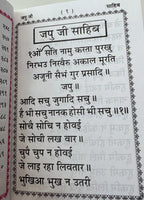 जपु जी ( १ ) साहिब
जपु जी साहिब
१ओं सति नामु करता पुरखु
निरभउ निरवैरु अकाल मूरति
अजूनी सैभं गुर प्रसादि॥
जपु॥
आदि सचु जुगादि सचु॥
है भी सचु नानक होसी भी सचु॥१॥
सोचै सोचि न होवई
जे सोची लख वार॥
चुपै चुप न होवई
जे लाइ रहा लिवतार॥
भुखिआ भुख न उतरी